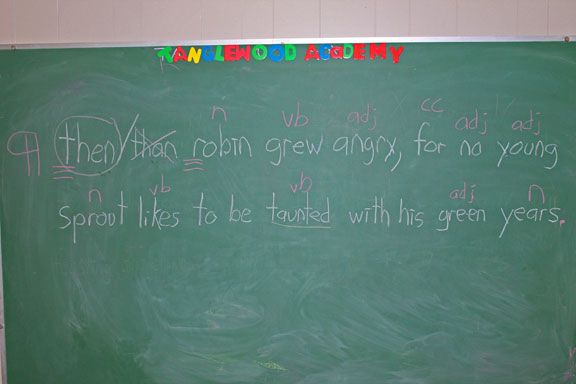 TANGLEWOOD ACADEMY
n vb adj cc adj adj
¶ then/than robin grew angry, for no young
n vb vb adj n
sprout likes to be taunted with his green years.